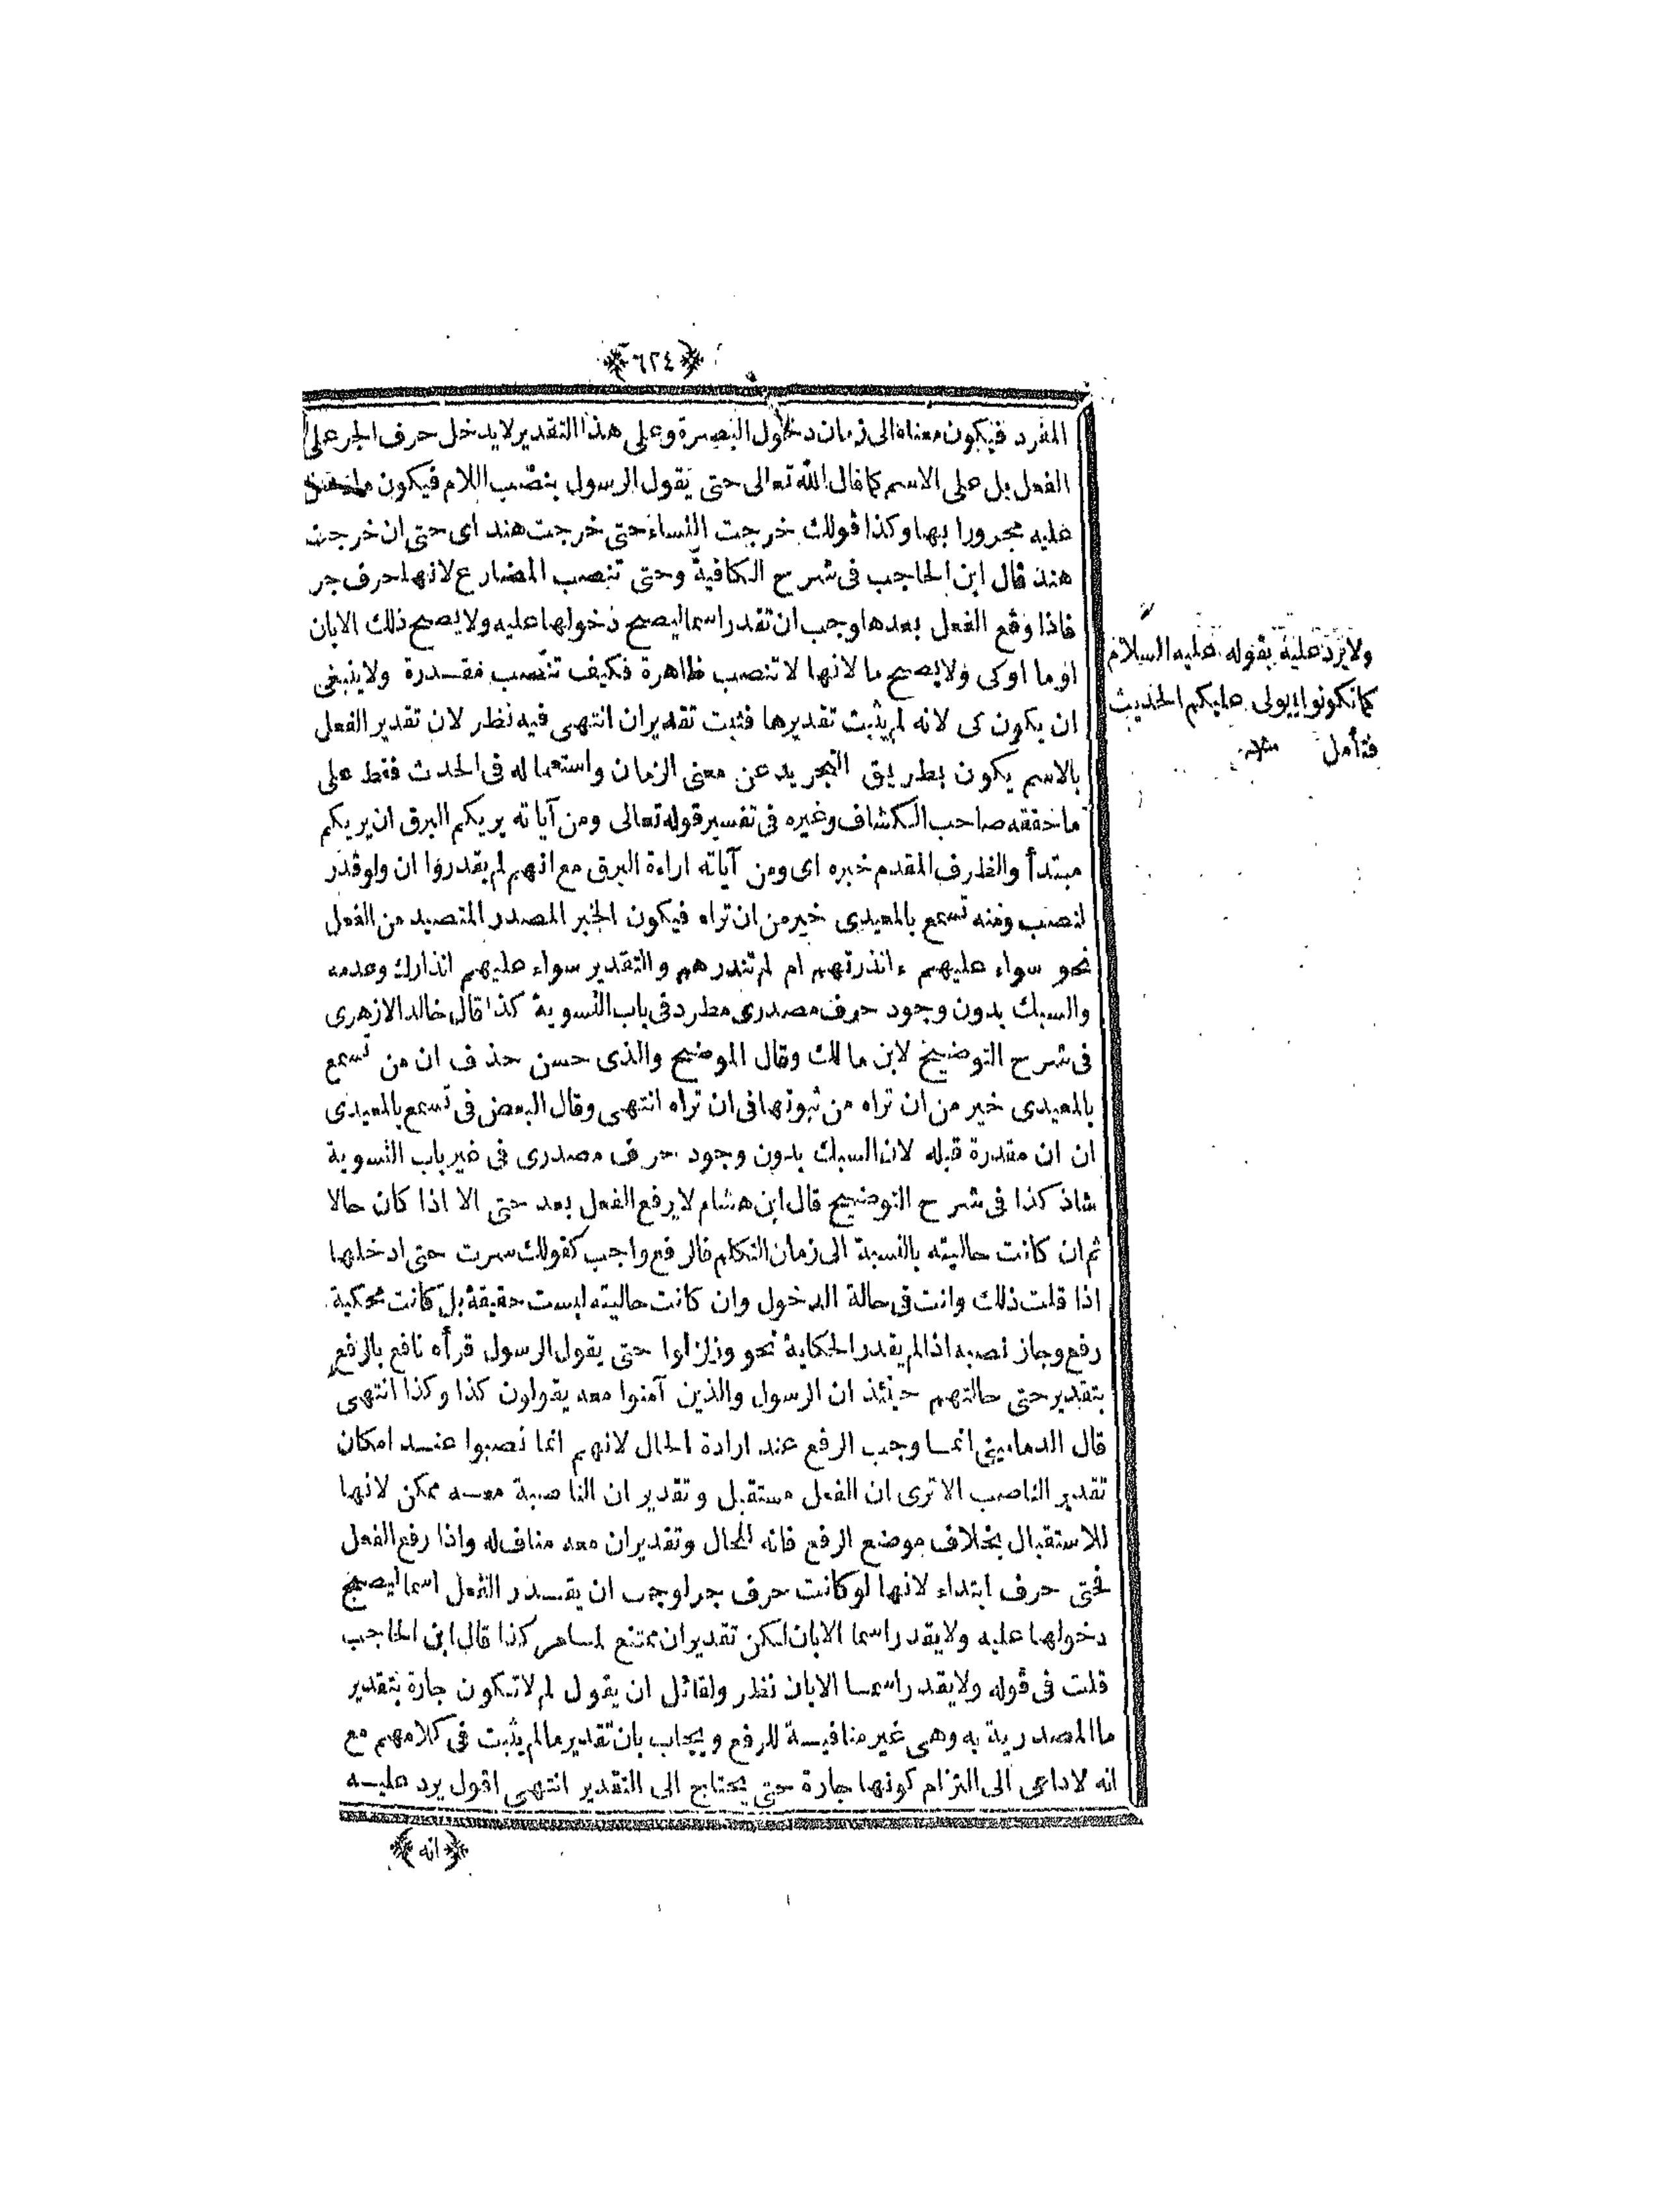 ﴿٦٢٤﴾
المفرد فيكون معناه الى زمان دخول البصرة وعلى هذا التقدير لا يدخل حرف الجر على
الفعل بل على الاسم كما قال الله تعالى حتى يقول الرسول بنصب اللام فيكون
عليه مجرورا بها وكذا قولك خرجت النساء حتى خرجت هند اى حتى ان خرجت
هند قال ابن الحاجب فى شرح الكافية وحتى تنصب المضارع لانها حرف جر
فاذا وقع الفعل بعدها وجب ان تقدر اسما ليصح دخولها عليه ولا يصح ذلك الا بان
او ما او كى ولا يصح ما لانها لا تنصب ظاهرة فكيف تنصب مقدرة ولا ينبغى
ان يكون كى لانه لم يثبت تقديرها فثبت تقدير ان انتهى فيه نظر لان تقدير الفعل
بالاسم يكون بطريق التجريد عن معنى الزمان واستعماله فى الحدث فقط على
ما حققه صاحب الكشاف وغيره فى تفسير قوله تعالى ومن آياته يريكم البرق ان يريكم
مبتدأ والظرف المقدم خبره اى ومن آياته اراءة البرق مع انهم لم يقدروا ان ولو قدر
لنصب ومنه تسمع بالمعيدى خير من ان تراه فيكون الخبر المصدر المتصيد من الفعل
نحو سواء عليهم ءانذرتهم ام لم تنذرهم والتقدير سواء عليهم انذارك وعدمه
والسبك بدون وجود حرف مصدرى مطرد فى باب التسوية كذا قال خالد الازهرى
فى شرح التوضيح لابن مالك وقال الموضح والذى حسن حذف ان من تسمع
بالمعيدى خير من ان تراه من ثبوتها فى ان تراه انتهى وقال البعض فى تسمع بالمعيدى
ان ان مقدرة قبله لان السبك بدون وجود حرف مصدرى فى غير باب التسوية
شاذ كذا فى شرح التوضيح قال ابن هشام لا يرفع الفعل بعد حتى الا اذا كان حالا
ثم ان كانت حاليته بالنسبة الى زمان التكلم فالرفع واجب كقولك سرت حتى ادخلها
اذا قلت ذلك وانت فى حالة الدخول وان كانت حاليته ليست حقيقة بل كانت محكية
رفع وجاز نصبه اذا لم يقدر الحكاية نحو وزلزلوا حتى يقول الرسول قرأه نافع بالرفع
بتقدير حتى حالتهم حينئذ ان الرسول والذين آمنوا معه يقولون كذا وكذا انتهى
قال الدمامينى انما وجب الرفع عند ارادة الحال لانهم انما نصبوا عند امكان
تقدير الناصب الا ترى ان الفعل مستقبل وتقدير ان الناصبة معه ممكن لانها
للاستقبال بخلاف موضع الرفع فانه للحال وتقدير ان معه مناف له واذا رفع الفعل
فحتى حرف ابتداء لانها لو كانت حرف جر لوجب ان يقدر الفعل اسما ليصح
دخولها عليه ولا يقدر اسما الا بان لكن تقدير ان ممتنع لما مر كذا قال ابن الحاجب
قلت فى قوله ولا يقدر اسما الا بان نظر ولقائل ان يقول لم لا تكون جارة بتقدير
ما المصدرية به وهى غير منافية للرفع ويجاب بان تقدير ما لم يثبت فى كلامهم مع
انه لا داعى الى التزام كونها جارة حتى يحتاج الى التقدير انتهى اقول يرد عليه
﴿انه﴾
ولا يرد عليه بقوله عليه السلام
كما تكونوا يولى عليكم الحديث
فتأمل منه